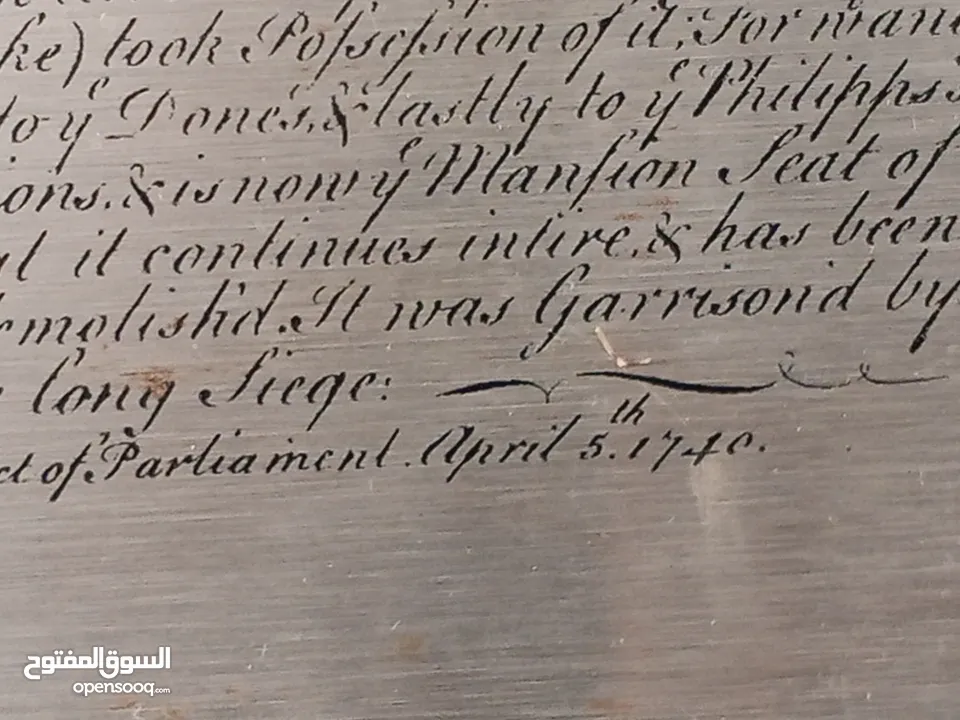 ke) took Poſseſsion of it; for many
to yͤ Dones, & lastly to yͤ Philipps's
ions, & is now yͤ Manſion Seat of
it continues intire, & has been
emolish'd. It was Garrison'd by
long Siege:
ct of Parliament. April 5.th 1740.
السوق المفتوح
opensooq.com